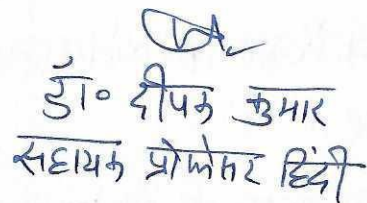 डॉ० दीपक कुमार
सहायक प्रोफेसर हिंदी